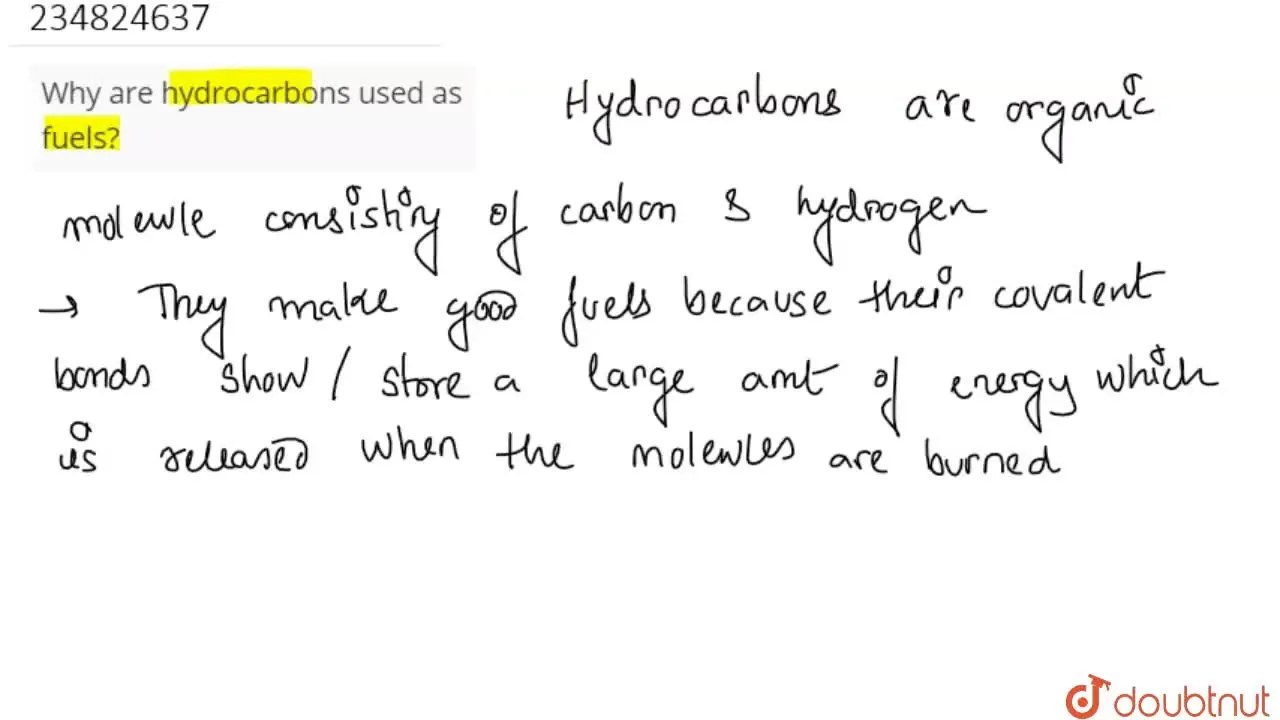 234824637
Why are hydrocarbons used as
fuels?
Hydrocarbons are organic
molecule consisting of carbon & hydrogen
→ They make good fuels because their covalent
bonds show / store a large amt of energy which
is released when the molecules are burned
doubtnut